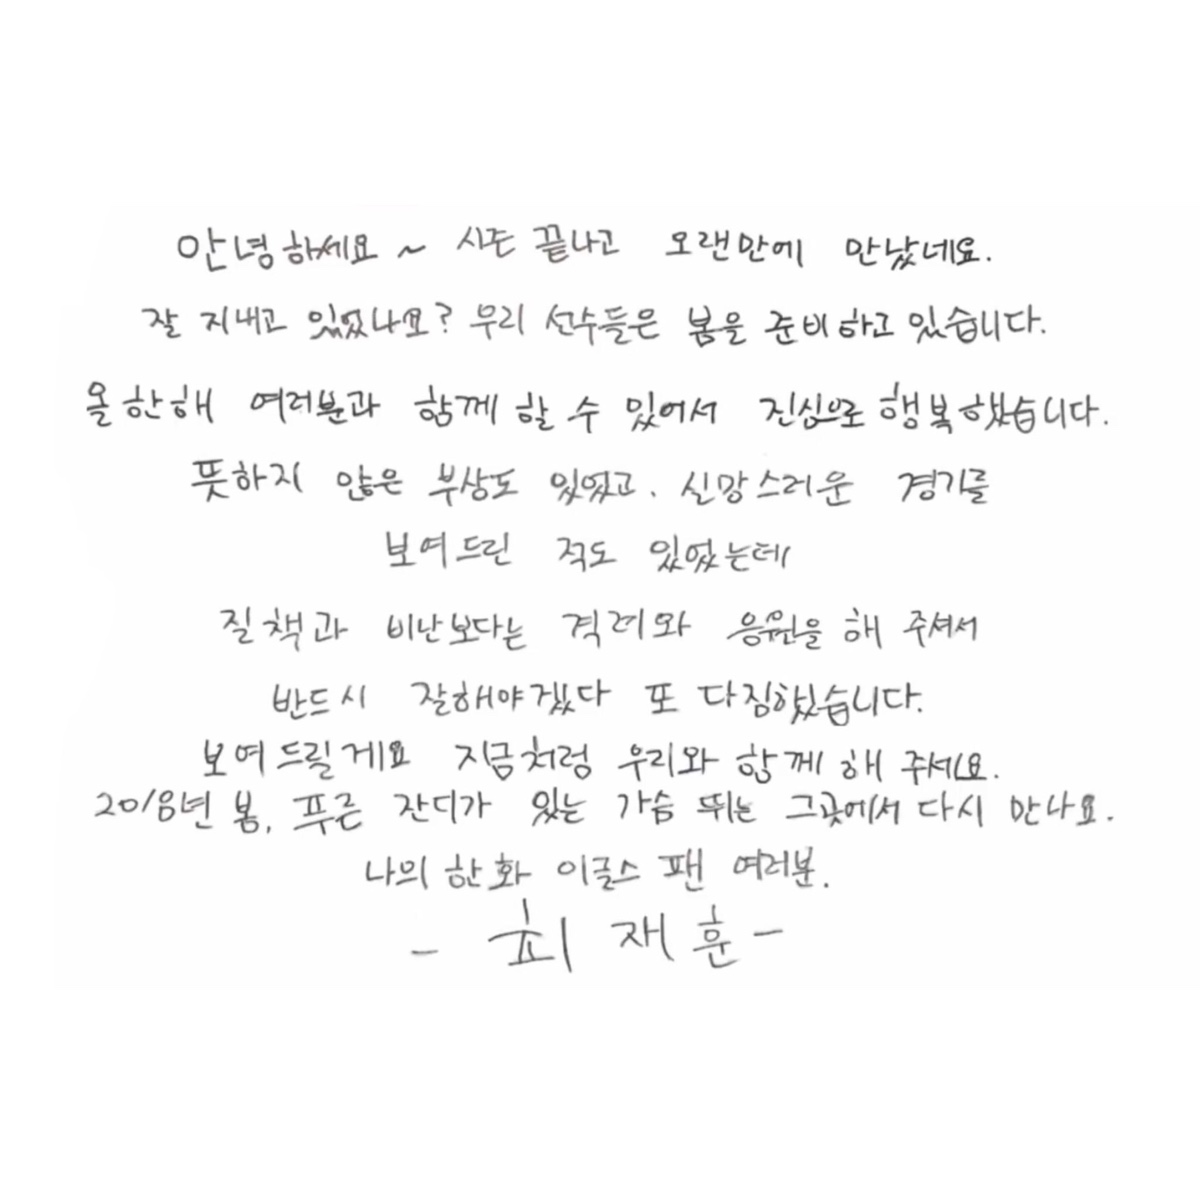 안녕하세요~ 시즌 끝나고 오랜만에 만났네요.
잘 지내고 있었나요? 우리 선수들은 봄을 준비하고 있습니다.
올 한해 여러분과 함께 할 수 있어서 진심으로 행복했습니다.
뜻하지 않은 부상도 있었고, 실망스러운 경기를
보여드린 적도 있었는데
질책과 비난보다는 격려와 응원을 해 주셔서
반드시 잘해야겠다 또 다짐했습니다.
보여드릴게요 지금처럼 우리와 함께 해 주세요.
2018년 봄, 푸른 잔디가 있는 가슴 뛰는 그곳에서 다시 만나요.
나의 한화 이글스 팬 여러분.
- 최재훈 -